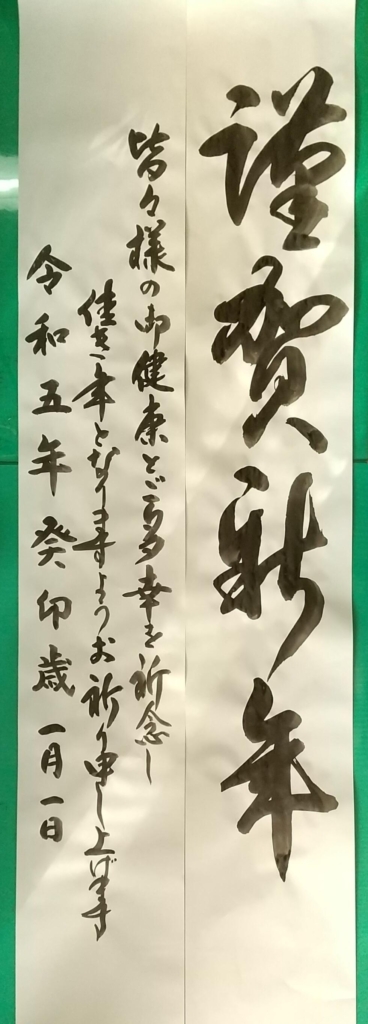 謹賀新年
皆々様の御健康とご多幸を祈念し
佳き年となりますようお祈り申し上げます
令和五年癸卯歳一月一日